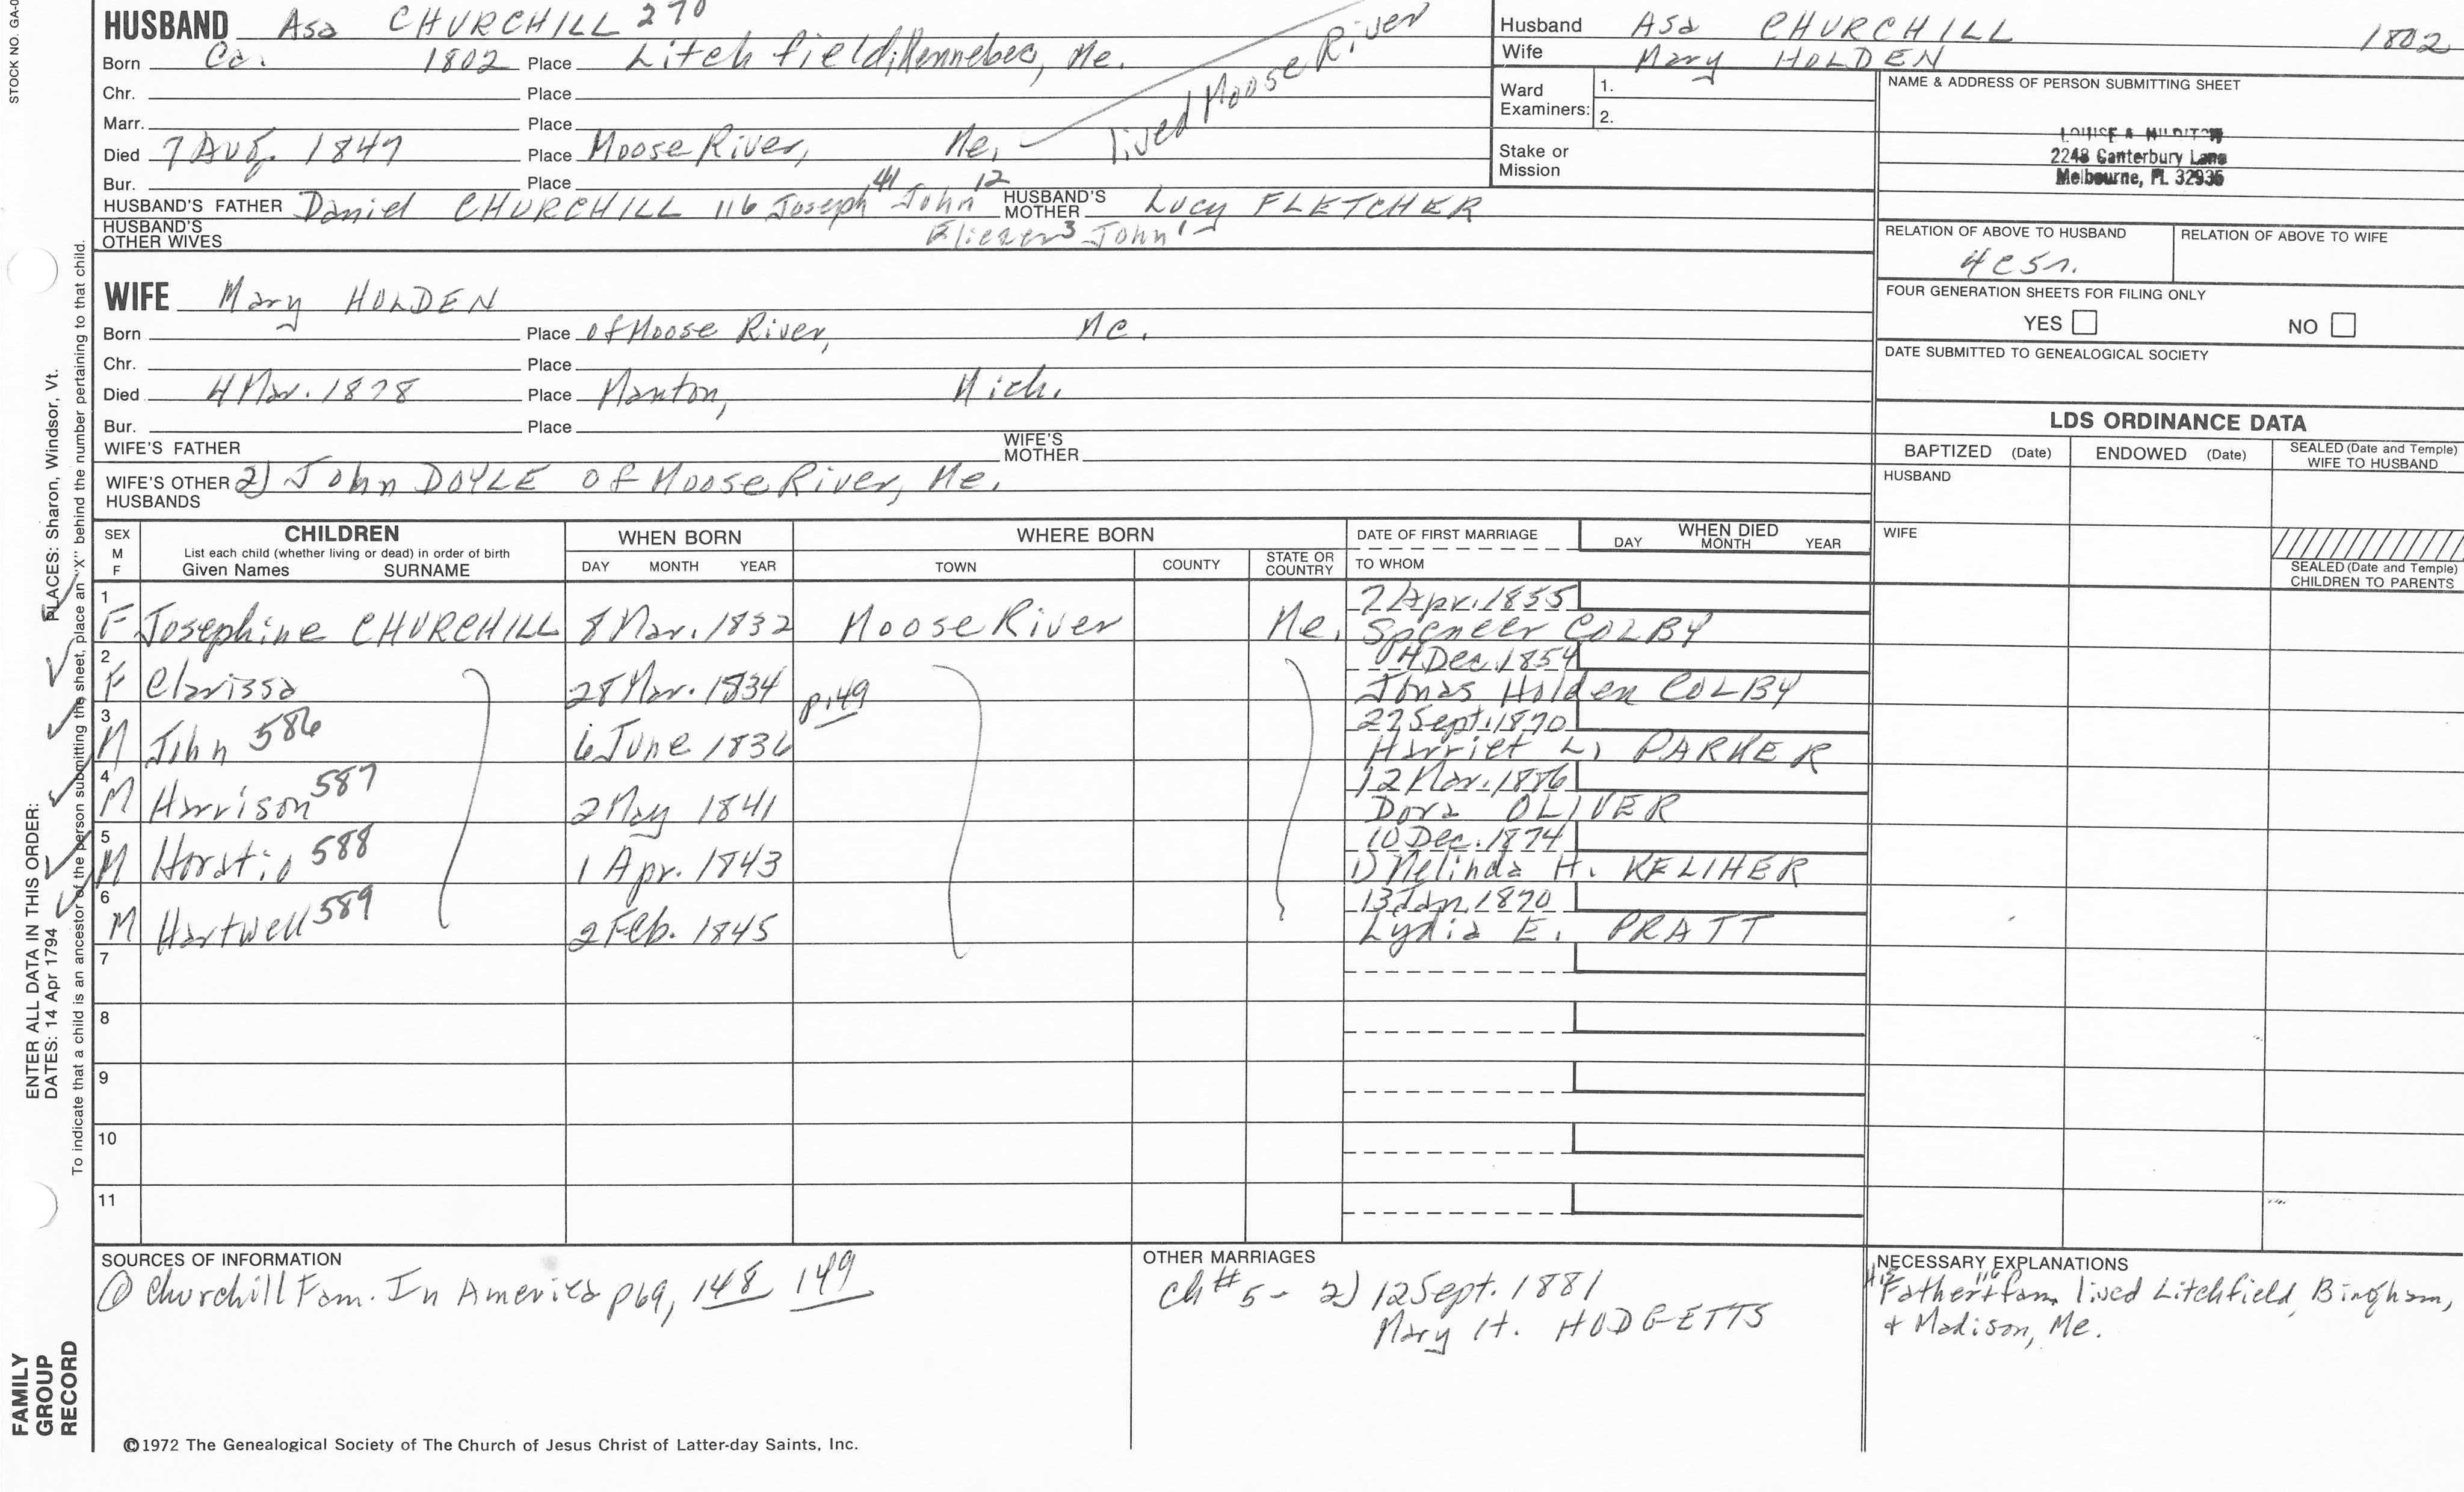 STOCK NO. GA-0
HUSBAND Asa CHURCHILL 270
Born Ca. 1802 Place Litchfield, Kennebec, Me.
Chr. Place
Marr. Place
Died 7 Aug. 1847 Place Moose River, Me. lived Moose River
Bur. Place
HUSBAND'S FATHER Daniel CHURCHILL 116 Joseph 41 John 12 HUSBAND'S MOTHER Lucy FLETCHER
Eliezer 3 John 1
HUSBAND'S OTHER WIVES
WIFE Mary HOLDEN
Born Place of Moose River, Me.
Chr. Place
Died 4 Mar. 1878 Place Manton, Mich.
Bur. Place
WIFE'S FATHER WIFE'S MOTHER
WIFE'S OTHER HUSBANDS 2) John DOYLE of Moose River, Me.
Husband Asa CHURCHILL 1802
Wife Mary HOLDEN
Ward Examiners: 1.
2.
Stake or Mission
NAME & ADDRESS OF PERSON SUBMITTING SHEET
2248 Canterbury Lane
Melbourne, FL 32935
RELATION OF ABOVE TO HUSBAND RELATION OF ABOVE TO WIFE
FOUR GENERATION SHEETS FOR FILING ONLY
YES NO
DATE SUBMITTED TO GENEALOGICAL SOCIETY
LDS ORDINANCE DATA
BAPTIZED (Date) ENDOWED (Date) SEALED (Date and Temple) WIFE TO HUSBAND
HUSBAND
WIFE
SEALED (Date and Temple) CHILDREN TO PARENTS
SEX M F
CHILDREN
List each child (whether living or dead) in order of birth
Given Names SURNAME
WHEN BORN
DAY MONTH YEAR
WHERE BORN
TOWN COUNTY STATE OR COUNTRY
DATE OF FIRST MARRIAGE
TO WHOM
WHEN DIED
DAY MONTH YEAR
1 F Josephine CHURCHILL 8 Mar. 1832 Moose River Me. 7 Apr. 1855
Spencer COLBY
2 F Clarissa 28 Mar. 1834 p. 49 4 Dec. 1854
Jonas Holden COLBY
3 M John 586 6 June 1836 22 Sept. 1870
Harriet L. PARKER
4 M Harrison 587 2 May 1841 12 Mar. 1886
Dora OLIVER
5 M Horatio 588 1 Apr. 1843 10 Dec. 1874
1) Melinda H. KELIHER
6 M Hartwell 589 2 Feb. 1845 13 Jan. 1870
Lydia E. PRATT
7
8
9
10
11
SOURCES OF INFORMATION
① Churchill Fam. In America p69, 148 149
OTHER MARRIAGES
Ch #5 - 2) 12 Sept. 1881
Mary H. HODGETTS
NECESSARY EXPLANATIONS
Father 116 + fam. lived Litchfield, Bingham,
+ Madison, Me.
©1972 The Genealogical Society of The Church of Jesus Christ of Latter-day Saints, Inc.
FAMILY GROUP RECORD
ENTER ALL DATA IN THIS ORDER:
DATES: 14 Apr 1794 PLACES: Sharon, Windsor, Vt.
To indicate that a child is an ancestor of the person submitting the sheet, place an "X" behind the number pertaining to that child.